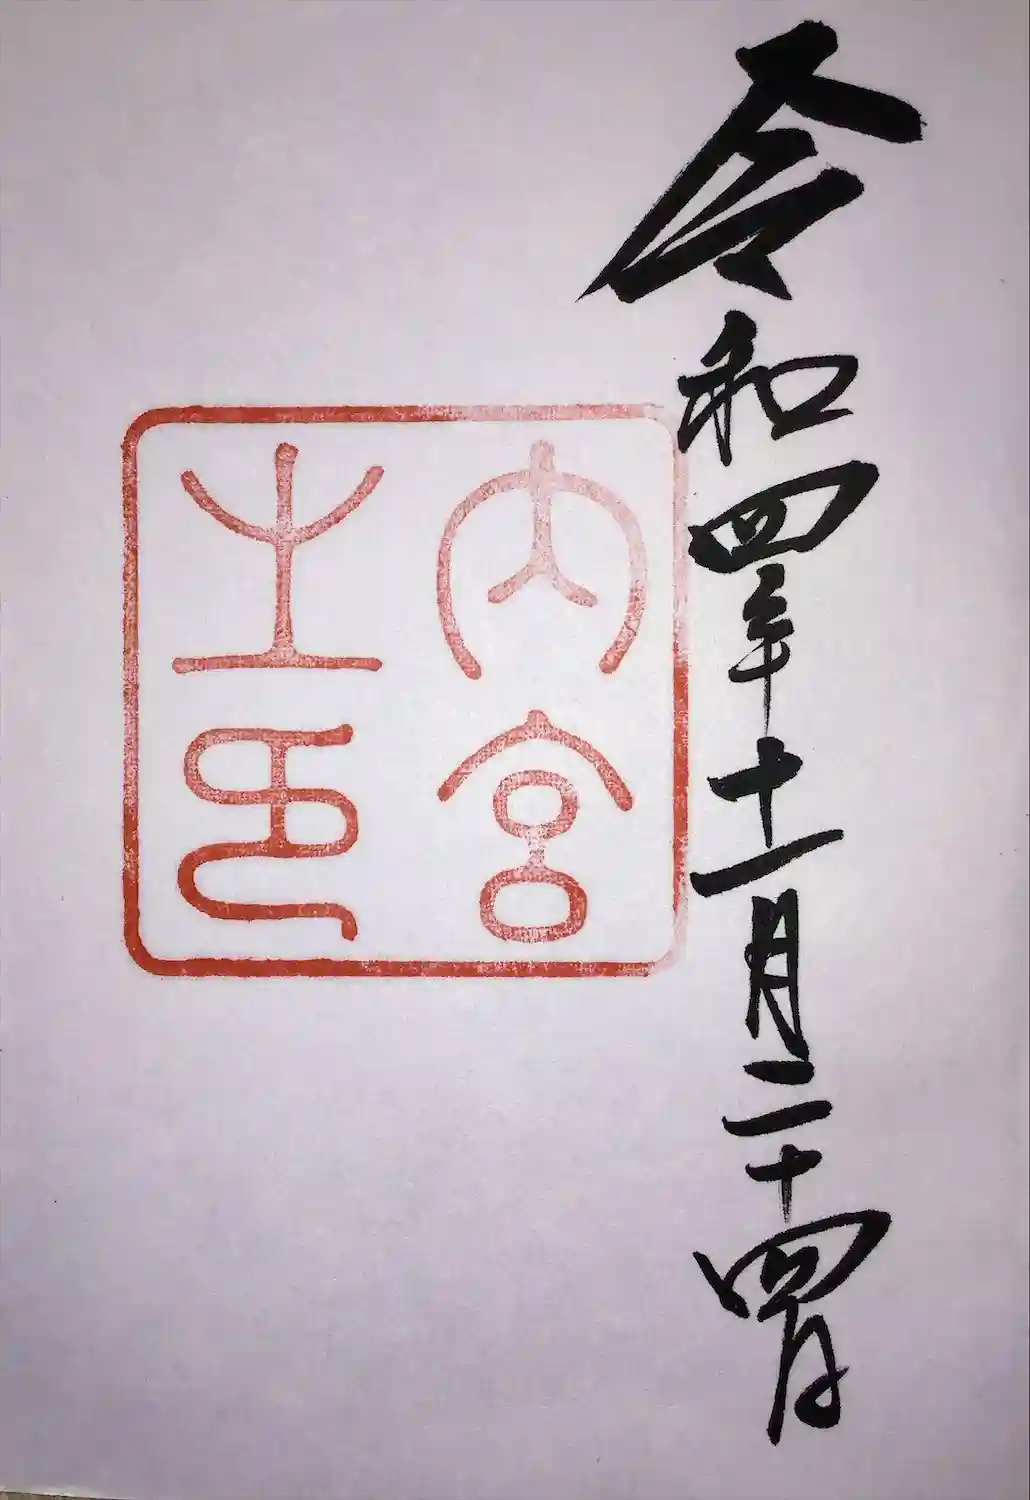 令和四年十一月二十四日
内宮
之印